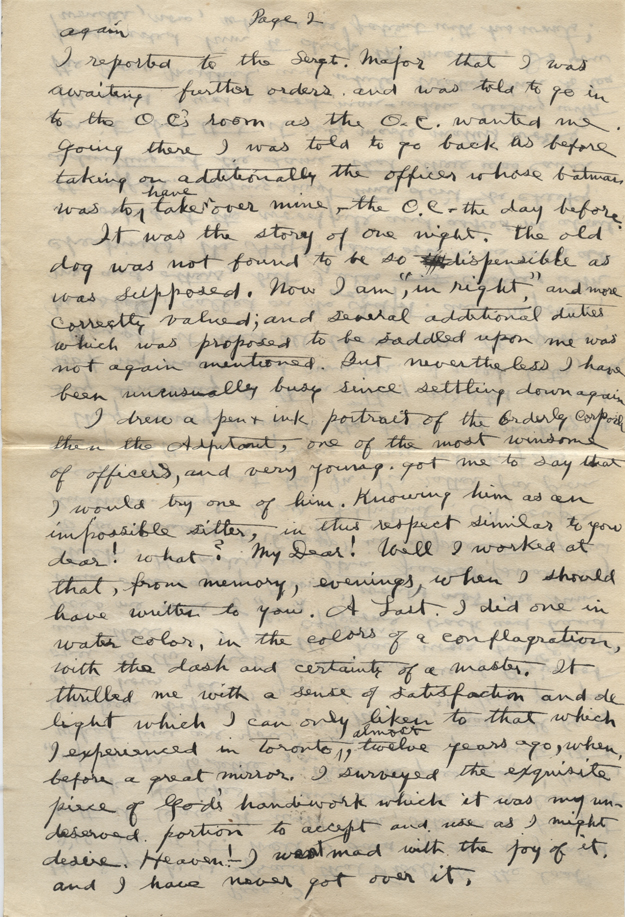 Page 2
again
I reported to the Sergt. Major that I was
awaiting further orders. and was told to go in
to the O.C's room as the O.C. wanted me.
Going there I was told to go back as before
taking on additionally the officer whose batman
was to have take over mine, - the O.C. - the day before.
It was the story of one night. The old
dog was not found to be so dispensible as
was supposed. Now I am "in right," and more
correctly valued; and several additional duties
which was proposed to be saddled upon me was
not again mentioned. But nevertheless I have
been uncusually busy since settling down again
I drew a pen + ink portrait of the Orderly Corporal
then the Adjutant, one of the most winsome
of officers, and very young. got me to say that
I would try one of him. Knowing him as an
impossible sitter, in this respect similar to you
dear! what? My Dear! Well I worked at
that, from memory, evenings, when I should
have written to you. A Last. I did one in
water color, in the colors of a conflagration,
with the dash and certainty of a master. It
thrilled me with a sense of satisfaction and de
light which I can only liken to that which
I experienced in Toronto, almost twelve years ago, when,
before a great mirror. I surveyed the exquisite
piece of God's handiwork which it was my un-
deserved portion to accept and use as I might
desire. Heaven! - I went mad with the joy of it,
and I have never got over it,